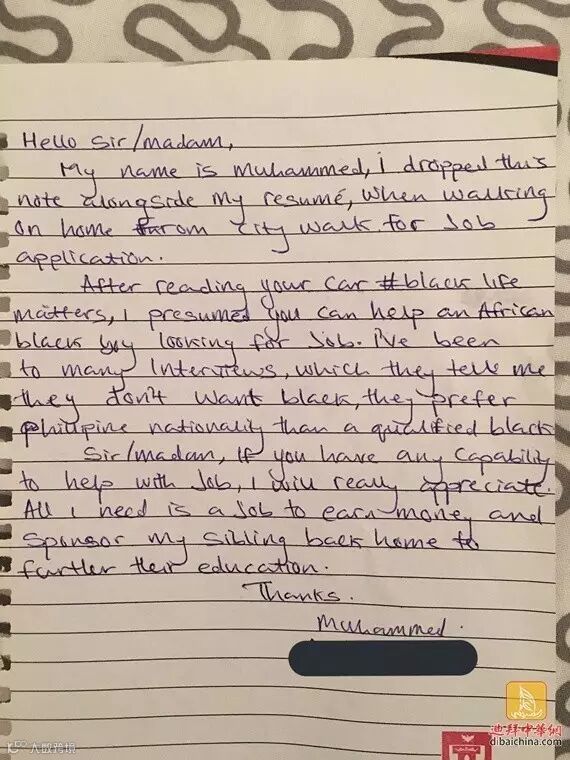 Hello Sir/madam,
My name is muhammed, i dropped this
note alongside my resumé, when walking
on home from city walk for Job
application.
After reading your car #black life
matters, i presumed you can help an African
black boy looking for Job. i've been
to many Interviews, which they tell me
they don't want black, they prefer
philipine nationality than a qualified black
Sir/madam, If you have any Capability
to help with Job, I will really appreciate.
All i need is a Job to earn money and
Sponsor my Sibling back home to
further their education.
Thanks.
muhammed.
迪拜中華網
dibaichina.com
大数跨境